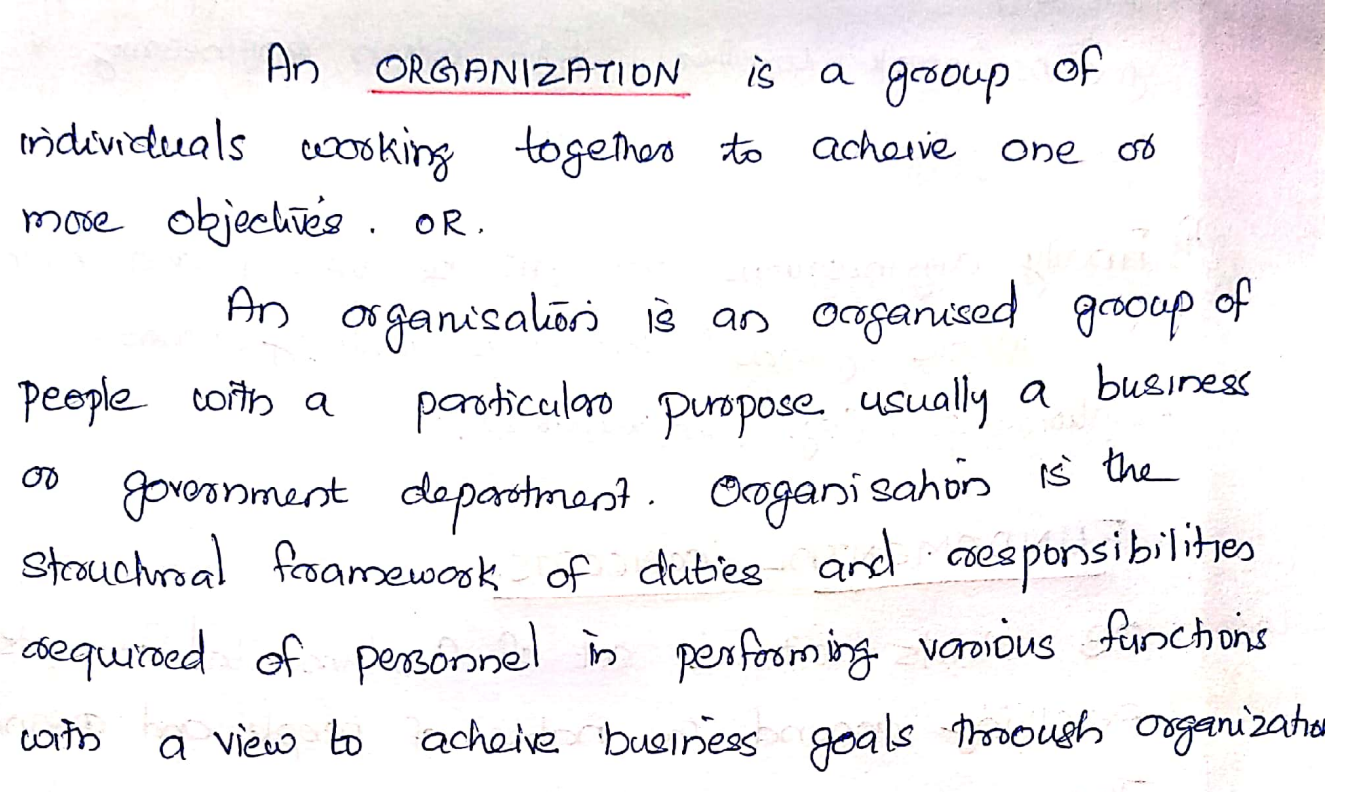 An ORGANIZATION is a group of
individuals working together to acheive one or
more objectives. OR.
An organisation is an organised group of
people with a particular purpose usually a business
or government department. Organisation is the
structural framework of duties and responsibilities
required of personnel in performing various functions
with a view to acheive business goals through organization